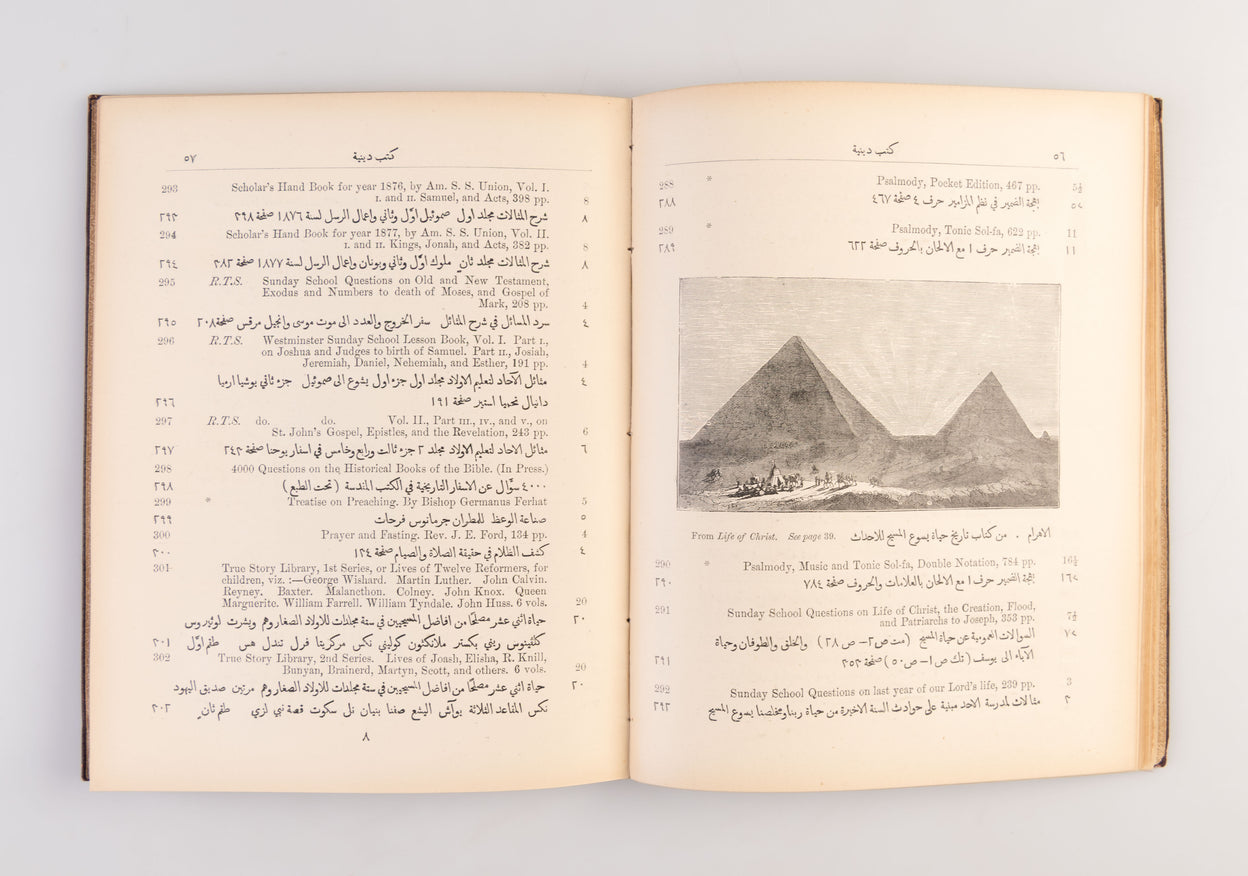 كتب دينية ٥٦
288 * Psalmody, Pocket Edition, 467 pp. 5½
بهجة الضمير في نظم المزامير حرف ٤ صفحة ٤٦٧ ٢٨٨
289 * Psalmody, Tonic Sol-fa, 622 pp. 11
١١ بهجة الضمير حرف ١ مع الالحان بالحروف صفحة ٦٢٢ ٢٨٩
From Life of Christ. See page 39. الاهرام . من كتاب تاريخ حياة يسوع المسيح للاحداث
290 * Psalmody, Music and Tonic Sol-fa, Double Notation, 784 pp. 16½
بهجة الضمير حرف ١ مع الالحان بالعلامات والحروف صفحة ٧٨٤ ٢٩٠
291 Sunday School Questions on Life of Christ, the Creation, Flood,
and Patriarchs to Joseph, 353 pp. 7½
السوالات العمومية عن حياة المسيح (مت ص ٢– ص ٢٨) والخلق والطوفان وحياة
الآباء الى يوسف (تك ص ١– ص ٥٠) صفحة ٣٥٣ ٢٩١
292 Sunday School Questions on last year of our Lord's life, 239 pp. 3
مثالات لمدرسة الاحد مبنية على حوادث السنة الاخيرة من حياة ربنا ومخلصنا يسوع المسيح ٢٩٢
٥٧ كتب دينية
293 Scholar's Hand Book for year 1876, by Am. S. S. Union, Vol. I.
I. and II. Samuel, and Acts, 398 pp. 8
٨ شرح المثالات مجلد اول صموئيل اوّل وثاني واعمال الرسل لسنة ١٨٧٦ صفحة ٣٩٨ ٢٩٣
294 Scholar's Hand Book for year 1877, by Am. S. S. Union, Vol. II.
I. and II. Kings, Jonah, and Acts, 382 pp. 8
٨ شرح المثالات مجلد ثانٍ ملوك اوّل وثاني ويونان واعمال الرسل لسنة ١٨٧٧ صفحة ٣٨٢ ٢٩٤
295 R.T.S. Sunday School Questions on Old and New Testament,
Exodus and Numbers to death of Moses, and Gospel of
Mark, 208 pp. 4
٤ سرد المسائل في شرح المثائل سفر الخروج والعدد الى موت موسى وانجيل مرقس صفحة ٢٠٨ ٢٩٥
296 R.T.S. Westminster Sunday School Lesson Book, Vol. I. Part I.,
on Joshua and Judges to birth of Samuel. Part II., Josiah,
Jeremiah, Daniel, Nehemiah, and Esther, 191 pp. 4
٤ مثائل الآحاد لتعليم الاولاد مجلد اول جزء اول يشوع الى صموئيل جزء ثاني يوشيا ارميا
دانيال نحميا استير صفحة ١٩١ ٢٩٦
297 R.T.S. do. do. Vol. II., Part III., IV., and V., on
St. John's Gospel, Epistles, and the Revelation, 243 pp. 6
٦ مثائل الآحاد لتعليم الاولاد مجلد ٢ جزء ثالث ورابع وخامس في اسفار يوحنا صفحة ٢٤٣ ٢٩٧
298 4000 Questions on the Historical Books of the Bible. (In Press.)
٤٠٠٠ سؤال عن الاسفار التاريخية في الكتب المقدسة (تحت الطبع) ٢٩٨
299 * Treatise on Preaching. By Bishop Germanus Ferhat 5
٥ صناعة الوعظ للمطران جرمانوس فرحات ٢٩٩
300 Prayer and Fasting. Rev. J. E. Ford, 134 pp. 4
٤ كشف الظلام في حقيقة الصلاة والصيام صفحة ١٣٤ ٣٠٠
301 True Story Library, 1st Series, or Lives of Twelve Reformers, for
children, viz. :—George Wishard. Martin Luther. John Calvin.
Reyney. Baxter. Malancthon. Colney. John Knox. Queen
Marguerite. William Farrell. William Tyndale. John Huss. 6 vols. 20
٢٠ حياة اثني عشر مصلحًا من افاضل المسيحيين في ستة مجلدات للاولاد الصغار وهم ويشرت لوثيروس
كلفينوس ريني بكستر ملانكثون كوليني نكس مركريتا فرل تندل هس طقم اوّل ٣٠١
302 True Story Library, 2nd Series. Lives of Joash, Elisha, R. Knill,
Bunyan, Brainerd, Martyn, Scott, and others. 6 vols. 20
٢٠ حياة اثني عشر مصلحًا من افاضل المسيحيين في ستة مجلدات للاولاد الصغار وهم مرتين صديق اليهود
نكس المقاعد الثلاثة يوآش اليشع صفنا بنيان نل سكوت قصة نبي لزي طقم ثانٍ ٣٠٢
٨